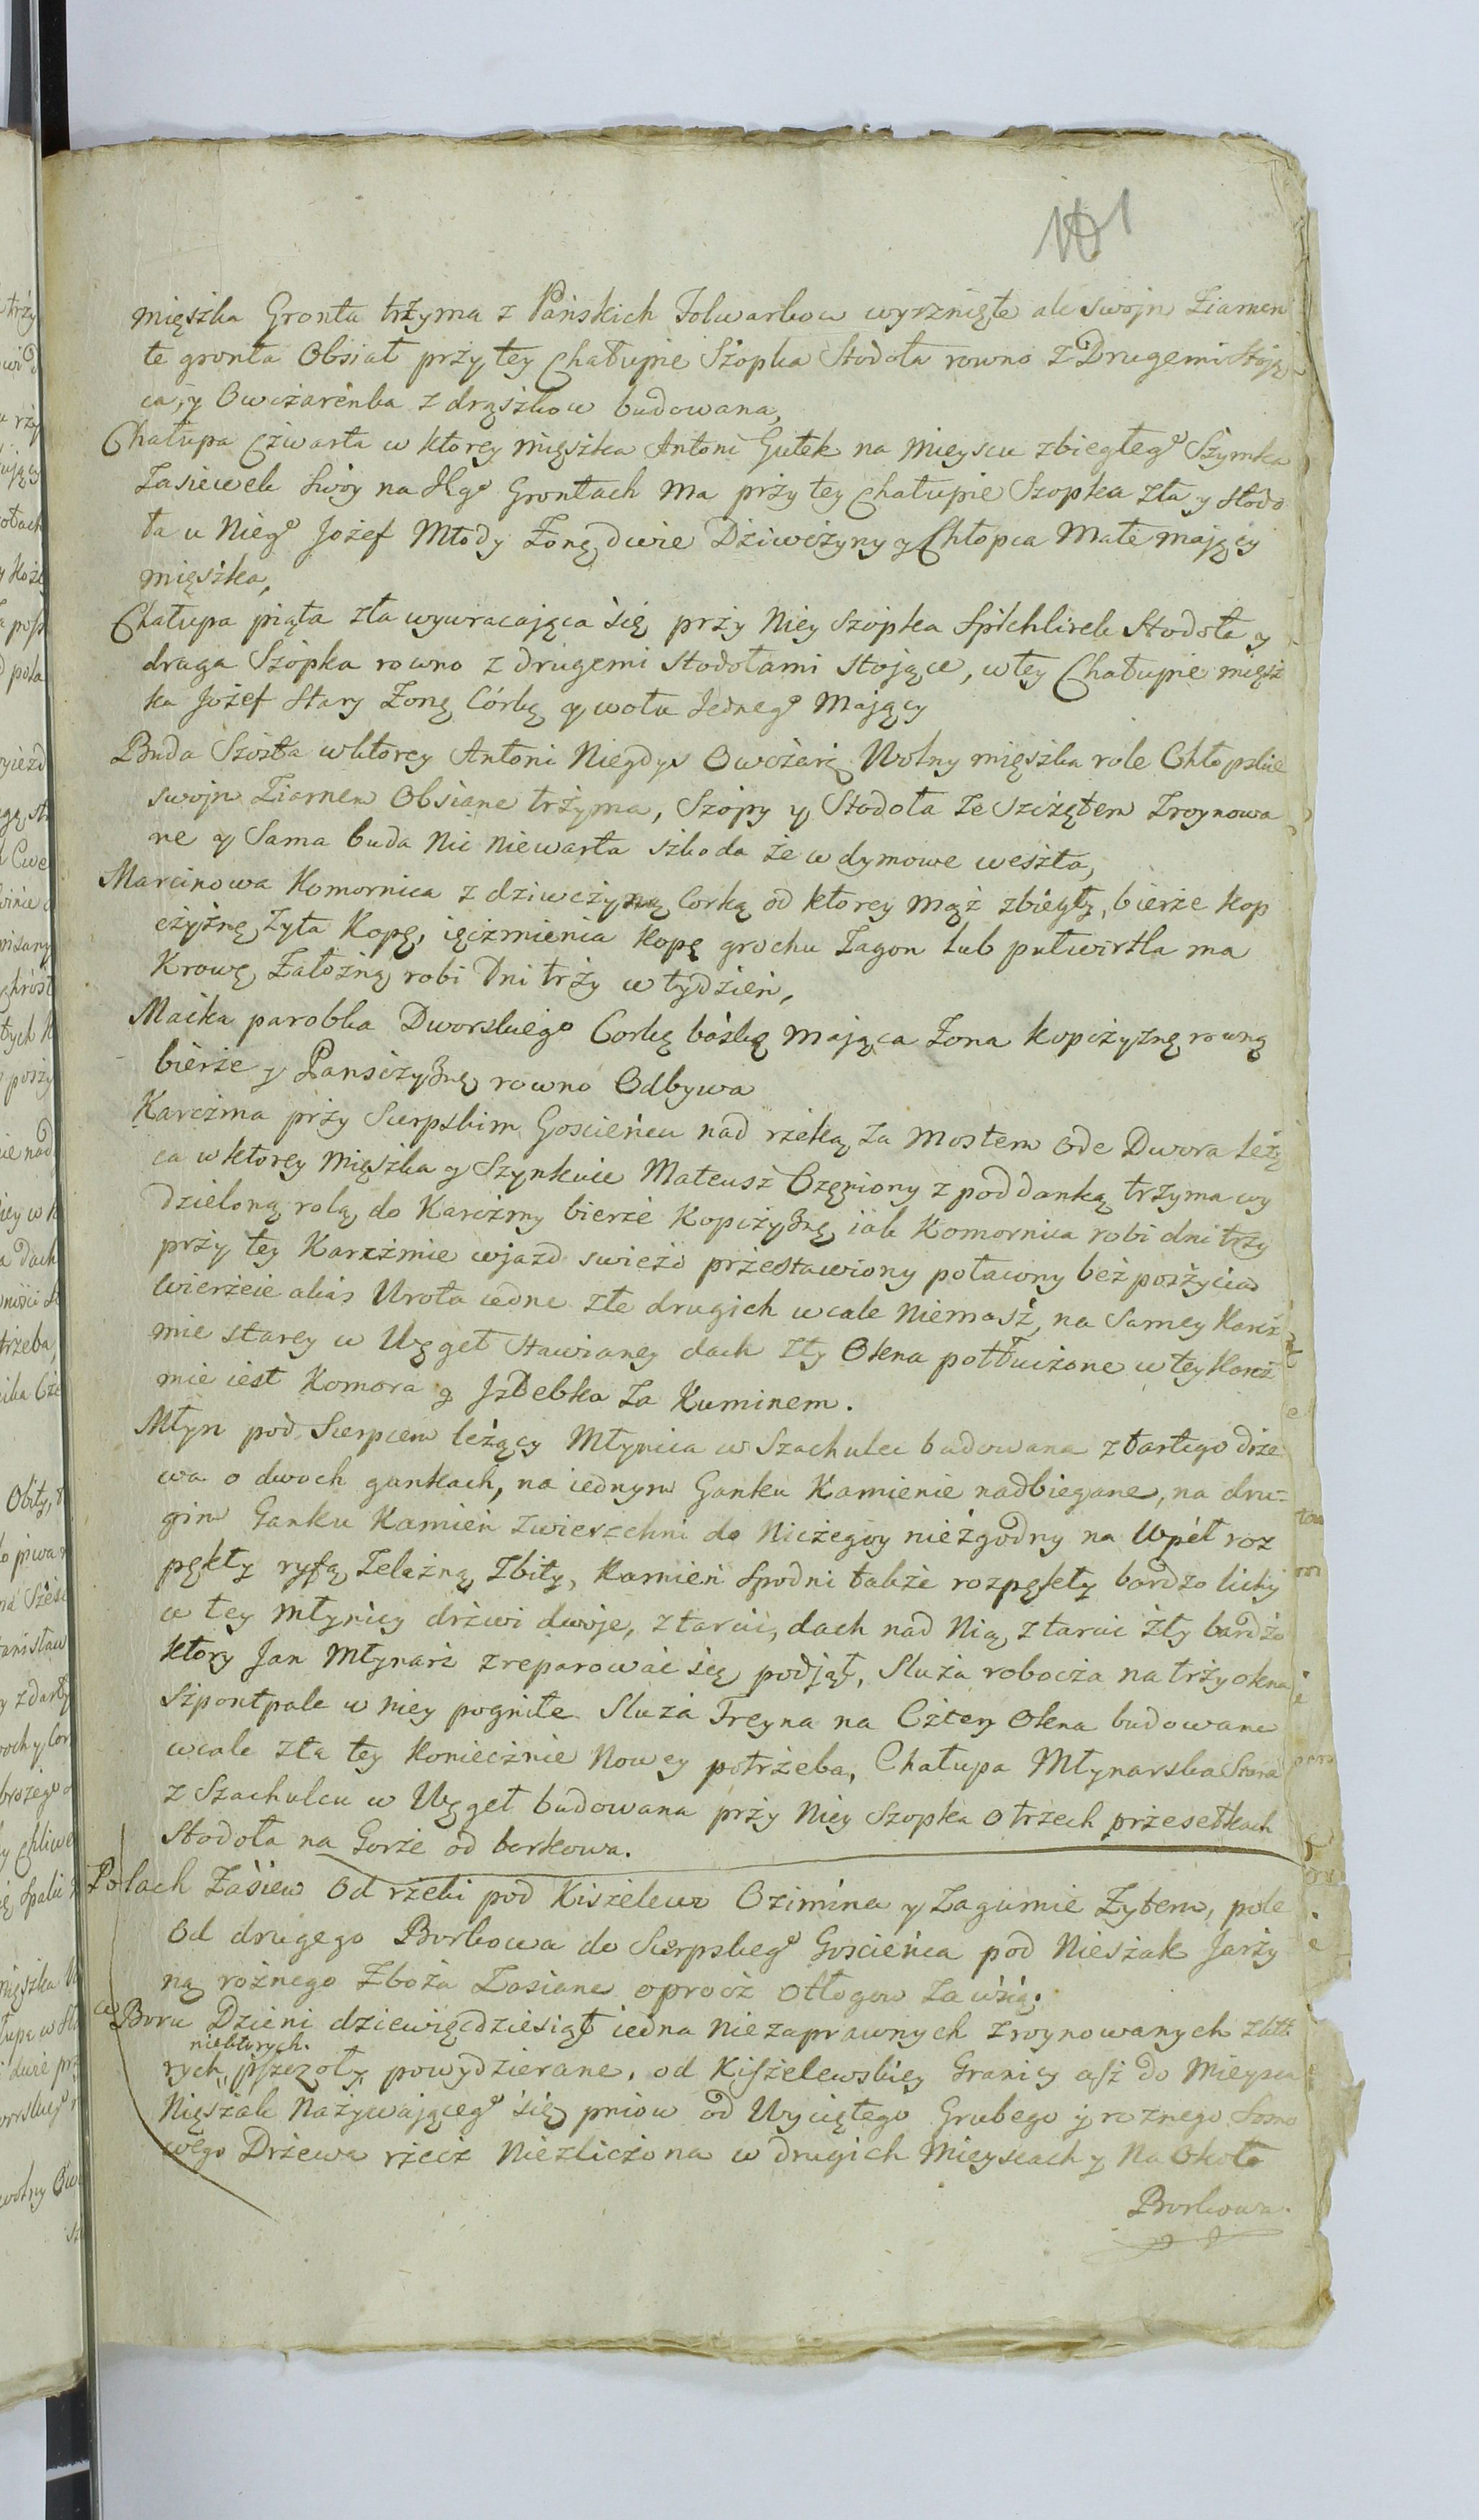 101
mięszka Gronta trżyma z Pańskich Folwarkow wyrznięte ale swojn Ziarnen
te gronta Obsiał przy tey Chałupie Szopka Stodoła rowno z Drugemi stoją
ca, y Owczarénka z drązkow budowana,
Chałupa Czwarta w ktorey mięszka Antoni Gutek na mieyscu zbiegłego Szymka
Zasiewek swóy na Grontach ma przy tey chałupie Szopka zła y stodo
ła u Niego Jozef Młody Zonę dwie Dziwczyny y Chłopca Małe mający
mięszka,
Chałupa piąta zła wywracająca się przy Niey Szopka Spichlirek Stodoła y
druga Szopka rowno z drugemi stodołami stojące, w tey Chałupie miesz
ka Jozef Stary Zonę Córkę y wołu Jednego Mający
Buda Szósta w ktorey Antoni Niegdys Owczarz Wolny mięszka role Chłopskie
swojn Ziarnem Obsiane trzyma, Szopy y Stodoła ze szczętem Zroynowa
ne y Sama buda nic niewarta szkoda że w dymowe weszła,
Marcinowa Komornica z dziwczyną Corką od ktorey mąż zbiegły, bierze kop
czyznę, żyta Kopę, ięczmienia Kopę grochu Zagon lub pułwirtla ma
Krowę Załozną robi Dni trzy w tydzień,
Maćka parobka Dworskiego Corkę báśkę mająca Zona kopczyznę rowną
bierze y Panszczyznę rowno Odbywa
Karczma przy Sierpskim Goscieńcu nad rzeką za mostem ode Dwora leżą
ca w ktorey mięszka y Szynkuie Mateusz z poddanką trzyma wy
dzieloną rolą do Karczmy bierze Kopczyznę iak Komornica robi dni trzy
przy tey Karczmie wjazd swiezo przestawiony połacony bez poszycia
wierzeie alias Wrota iedne złe drugich wcale Niemasz, na Samey Karcz
mie starey w Węgeł stawianey dach zły Okna potłuczone w tey Karcz
mie iest Komora y Jzdebka za Kuminem.
Młyn pod Sierpcem leżący Młynica w Szachulec budowana z tartego drze
wa o dwoch gankach, na iednym Ganku Kamienie nadbiegane, na dru=
gim Ganku Kamień zwierzchni do Niczegoy niezgodny na Wpół roz
pękły ryfą Zelazną Zbity, Kamień spodni także rozpękły bardzo lichy
w tey młynicy drzwi dwoje, z tarcic, dach nad Nią z tarcic zły bardzo
ktory Jan Młynarz zreparować się podjął, Sluza robocza na trzy okna
szpontpale w niey pogniłe Sluza Freyna na Cztery Okna budowane
wcale zła tey Koniecznie Nowey potrzeba, Chałupa Młynarska Stara
z Szachulcu w Węgeł budowana przy Niey Szopka o trzech przesetkach
Stodoła na Gorze od borkowa.
Polach Zasiew Od rzeki pod Kiszelewo Ozimina y Zagumie Zytem, pole
Od drugego Borkowa do Sierpskiego Goscieńca pod Nieszak Jarzy
ną rożnego Zboża Zasiane oprocz Otłogow Zawsią.
w Boru Dzieni dziewięcdziesiąt iedna niezaprawnych zroynowanych z któ
niektorych.
rych pszczoły powydzierane, od Kiszelewskiey Granicy asz do Mieysca
Nięszak Nazywającego się pniow od Wyciętego Grubego y roznego Sosno
wego Drzewa rzecz Niezliczona w drugich Mieyscach y Na Około
Borkowa.